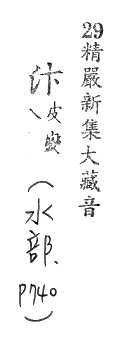 29精嚴新集大藏音
汴皮變(水部、P740)